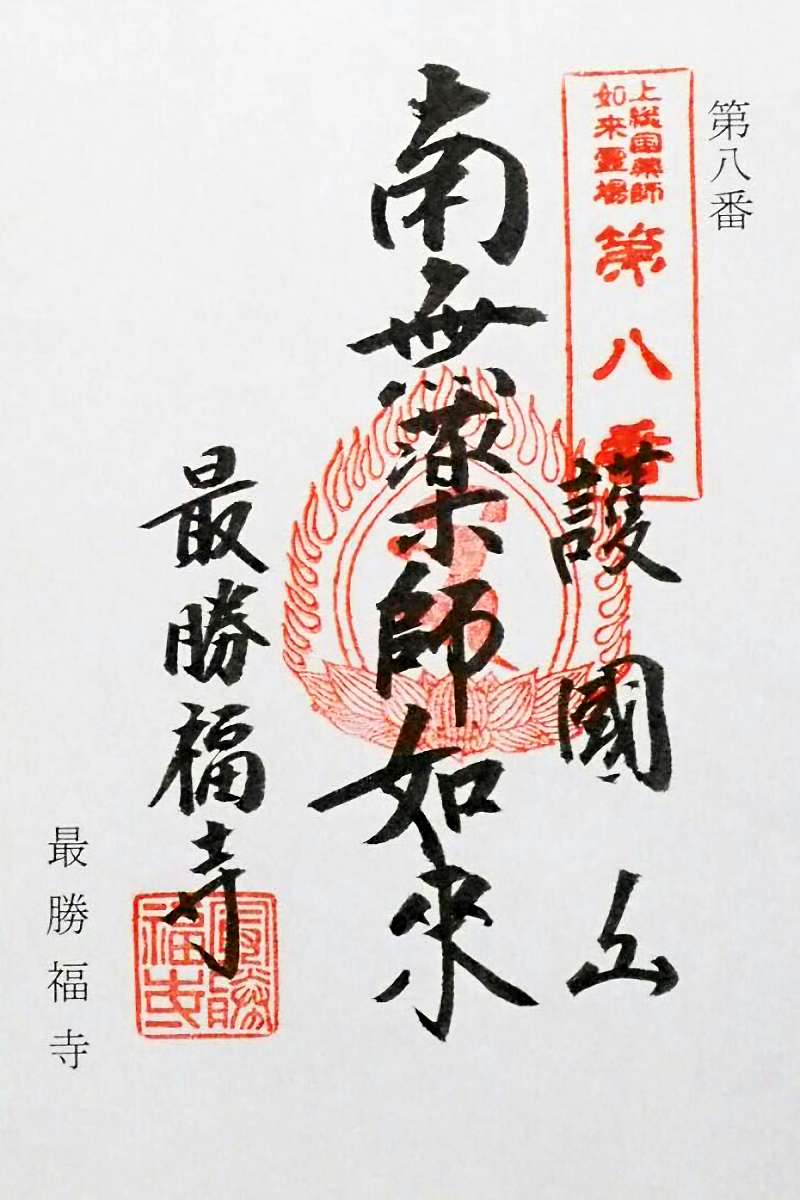 第八番
上総国薬師
如来霊場
第八番
護國山
南無薬師如来
最勝福寺
最勝福寺
最勝福寺